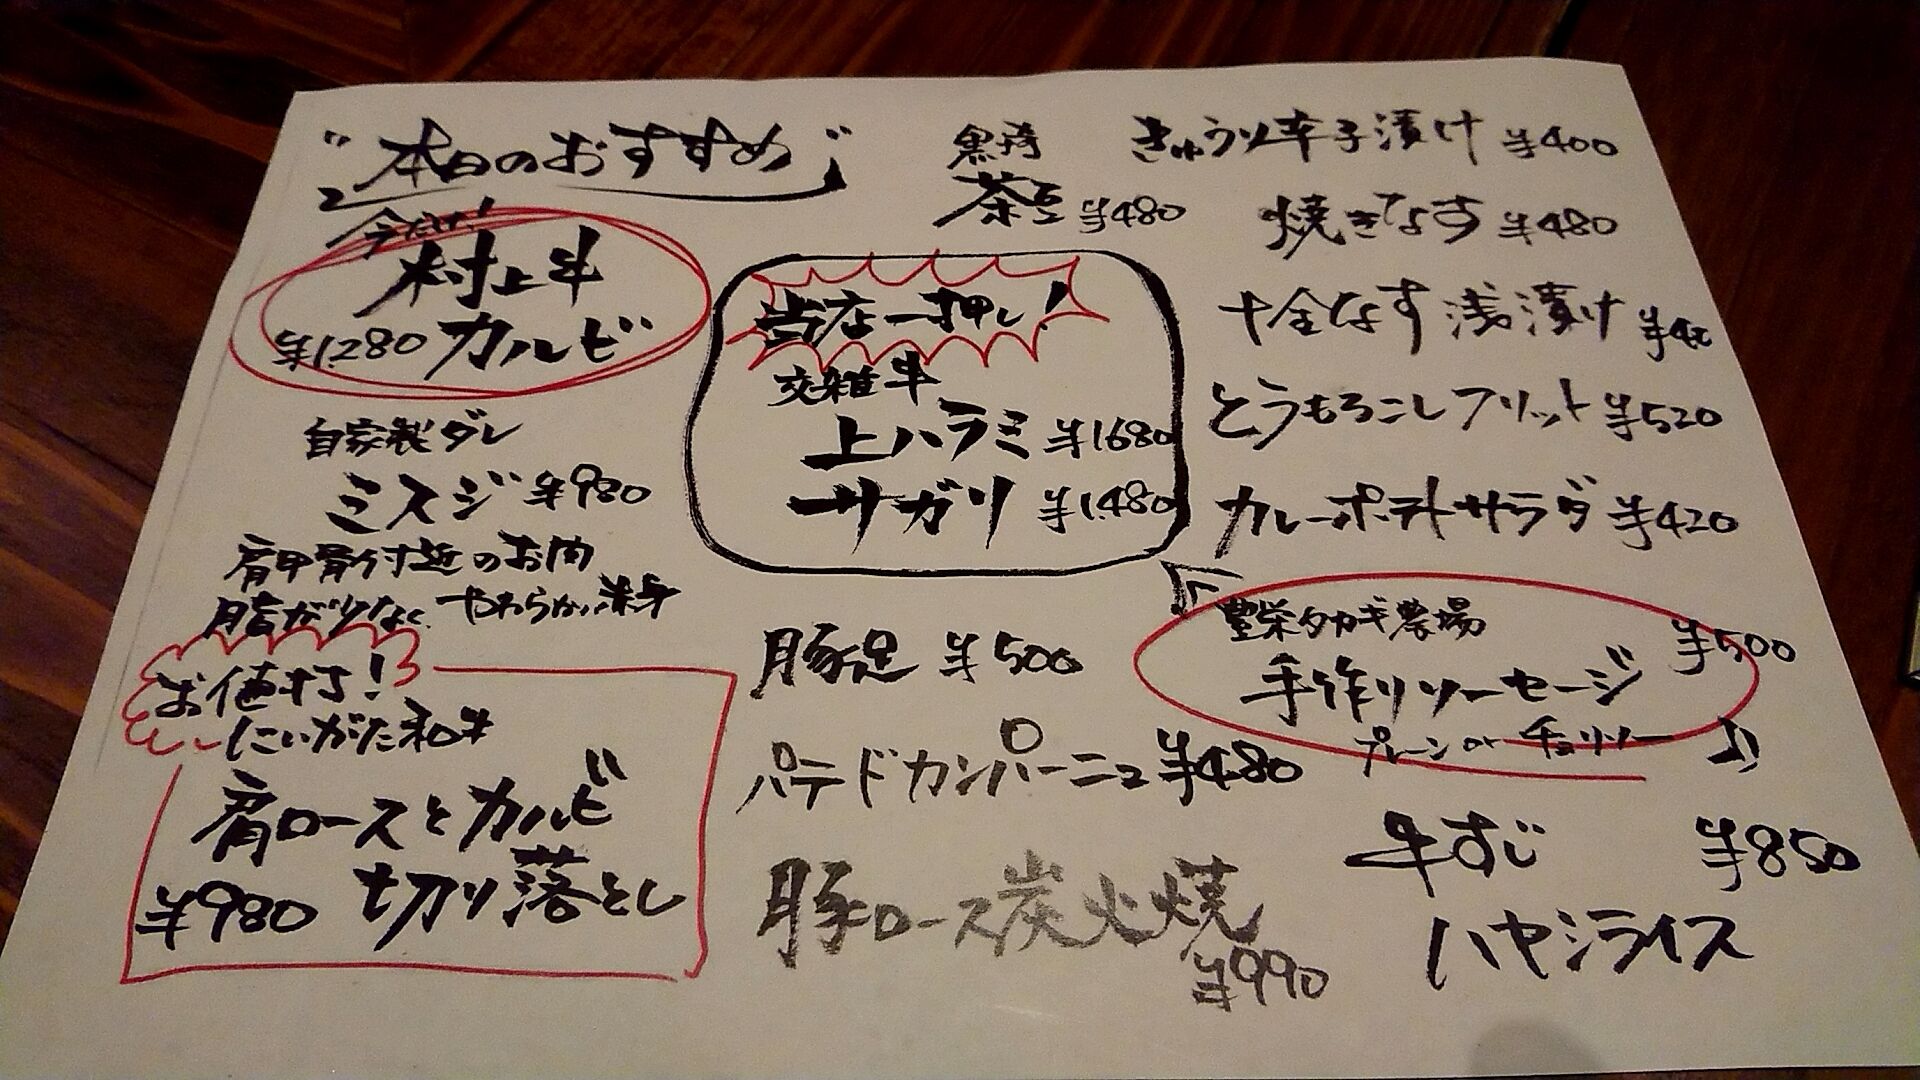 "本日のおすすめ"
今だけ!
村上牛
カルビ
¥1,280
自家製ダレ
ミスジ ¥980
肩甲骨付近のお肉
脂が少なく、やわらかい
お値打ち!
にいがた和牛
肩ロースとカルビ
切り落とし
¥980
黒埼
茶豆 ¥480
当店一押し!
交雑牛
上ハラミ ¥1680
サガリ ¥1,480
豚足 ¥500
パテドカンパーニュ ¥480
豚ロース炭火焼
¥990
きゅうり辛子漬け ¥400
焼きなす ¥480
十全なす浅漬け
とうもろこしフリット ¥520
カレーポテトサラダ ¥420
豊栄タカギ農場
手作りソーセージ ¥500
プレーン or チョリソー ♪
牛すじ ¥850
ハヤシライス